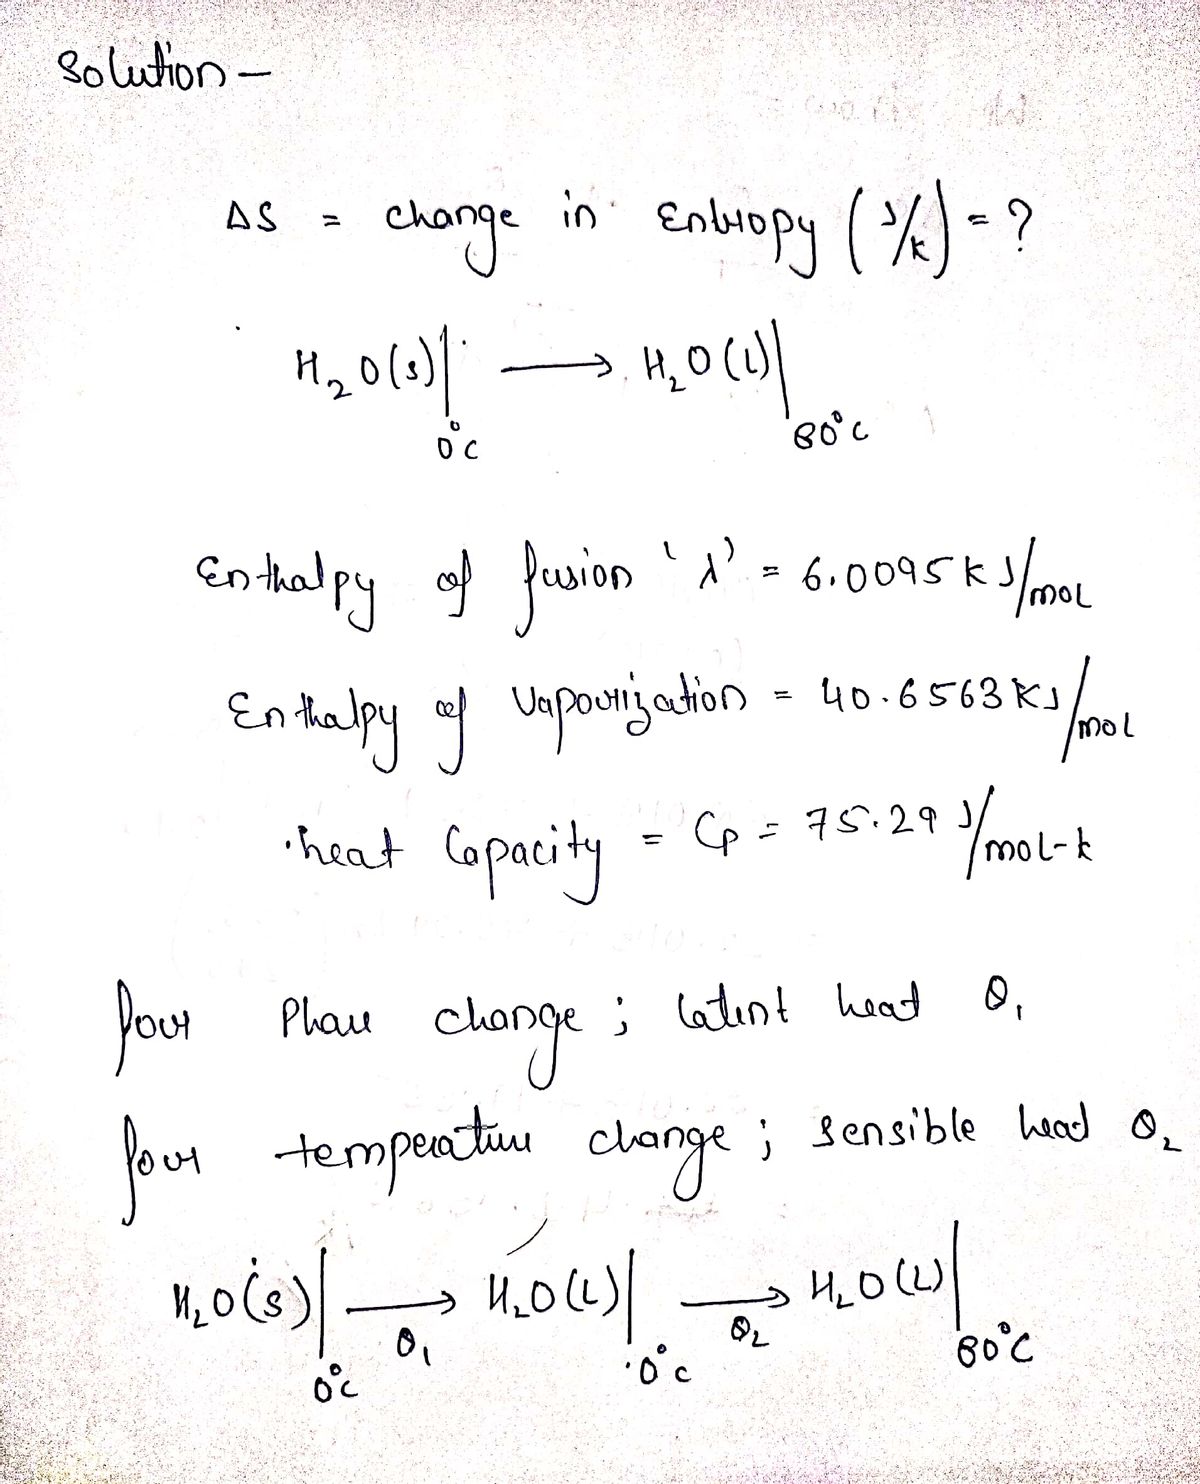 Solution -
ΔS = change in Entropy (J/K) = ?
H₂O(s)| ⟶ H₂O(l)|
0°C 80°C
Enthalpy of fusion 'λ' = 6.0095 KJ/mol
Enthalpy of Vapourization = 40.6563 KJ/mol
heat Capacity = Cp = 75.29 J/mol-k
for Phase change ; latent heat Q₁
for temperature change ; sensible head Q₂
H₂O(s)| ⟶ H₂O(L)| ⟶ H₂O(L)|
Q₁ Q₂
0°C 0°C 80°C